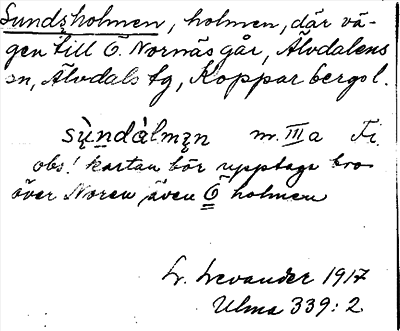 Sundsholmen, holmen, där vä-
gen till Ö. Nornäs går, Älvdalens
sn, Älvdals tg, Kopparbergs l.
sùndàlmęn m. III a Fi.
obs! kartan bör upptaga bro
över Noren även Ö holmen
L. Levander 1917
Ulma 339:2